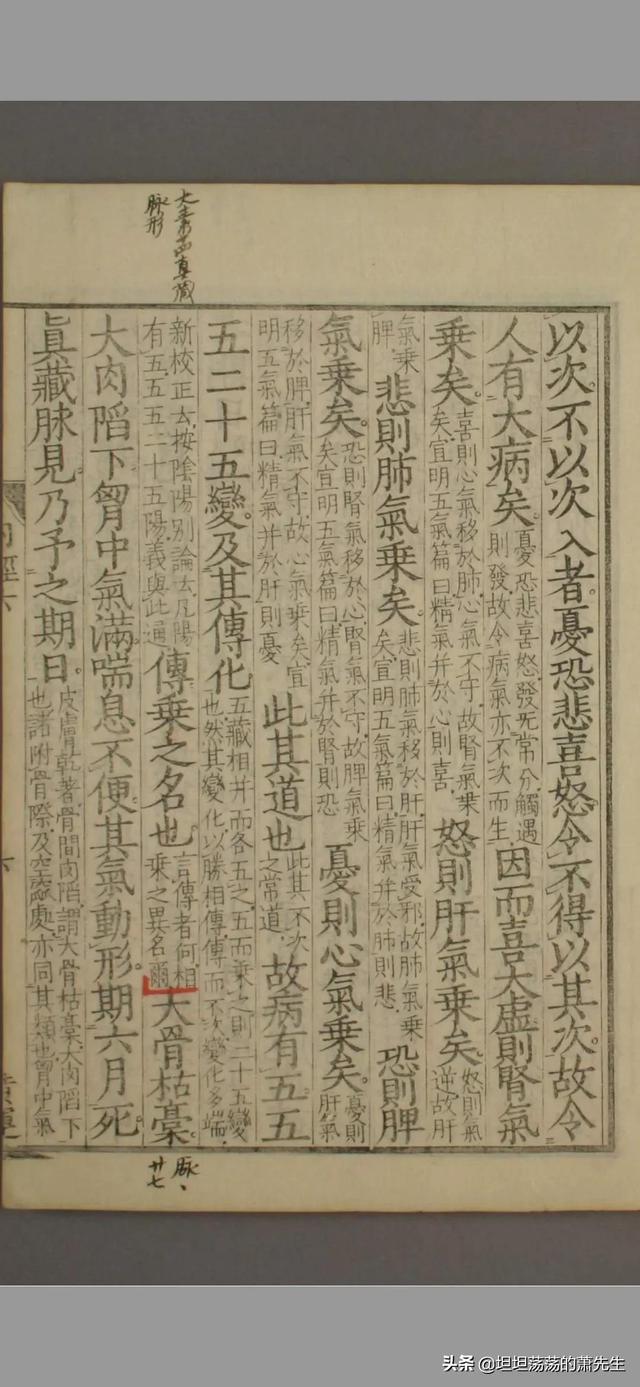 大素五真藏
脉形
以次不以次入者憂恐悲喜怒令不得以其次故令
人有大病矣憂恐悲喜怒發死常分觸遇則發故令病氣亦不次而生因而喜大虛則腎氣
乘矣喜則心氣移於肺心氣不守故腎氣乗矣宜明五氣篇曰精氣并於心則喜怒則肝氣乘矣怒則氣逆故肝
氣乗脾悲則肺氣乘矣悲則肺氣移於肝肝氣受邪故肺氣乗矣宜明五氣篇曰精氣并於肺則悲恐則脾
氣乘矣恐則腎氣移於心腎氣不守故脾氣乗矣宣明五氣篇曰精氣并於腎則恐憂則心氣乘矣憂則肝氣
移於脾肝氣不守故心氣乗矣宜明五氣篇曰精氣并於肝則憂此其道也此其不次之常道故病有五五
五二十五變及其傳化五藏相并而各五之五而乘之則二十五變也然其變化以勝相傳傳而不次變化多端
新校正云按陰陽别論云凡陽有五五五二十五陽義與此通傳乘之名也言傳者何相乘之異名爾大骨枯藁
大肉䧟下胷中氣滿喘息不便其氣動形期六月死
眞藏脉見乃予之期日皮膚乾著骨間肉䧟謂大骨枯藁大肉䧟下也諸附骨際及空竅處亦同其類也胷中氣
脉、
廿七
头条 @坦坦荡荡的萧先生